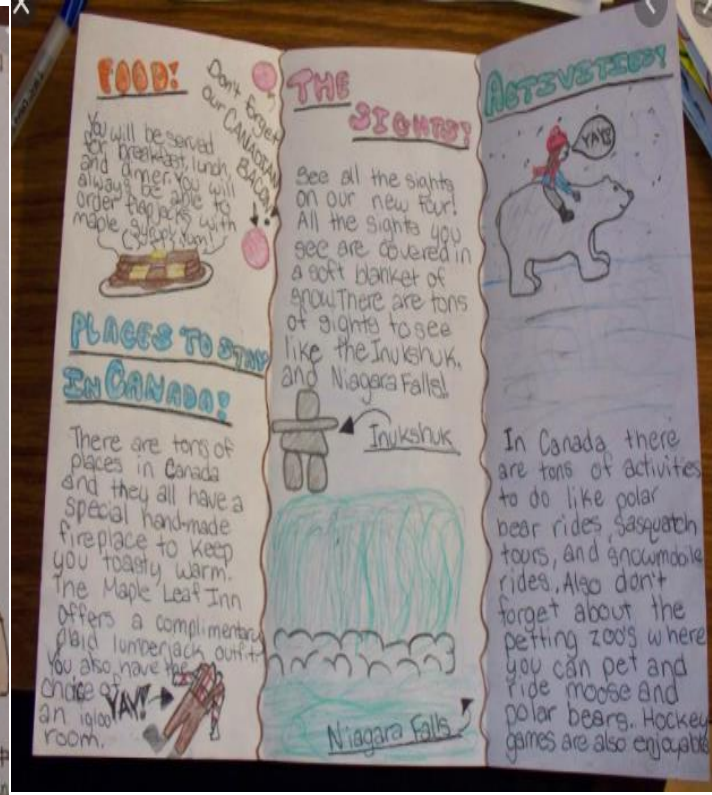 FOOD!
Don't forget
our CANADIAN
BACON!
You will be served
for breakfast, lunch,
and dinner. You will
always be able to
order flapjacks with
maple syrup! Yum!
PLACES TO STAY
IN CANADA!
There are tons of
places in Canada
and they all have a
special hand-made
fireplace to keep
you toasty warm.
The Maple Leaf Inn
offers a complimentary
plaid lumberjack outfit.
You also have the
choice of
an igloo
room.
YAY!
THE
SIGHTS!
See all the sights
on our new tour!
All the sights you
see are covered in
a soft blanket of
snow. There are tons
of sights to see
like the Inukshuk,
and Niagara Falls!
Inukshuk
Niagara Falls
ACTIVITIES!
YAY!
In Canada there
are tons of activities
to do like polar
bear rides, sasquatch
tours, and snowmobile
rides. Also don't
forget about the
petting zoo's where
you can pet and
ride moose and
polar bears. Hockey
games are also enjoyable